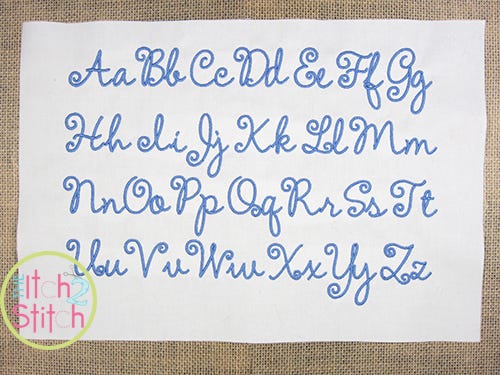 Aa Bb Cc Dd Ee Ff Gg
Hh Ii Jj Kk Ll Mm
Nn Oo Pp Qq Rr Ss Tt
Uu Vv Ww Xx Yy Zz
the Itch 2
Stitch